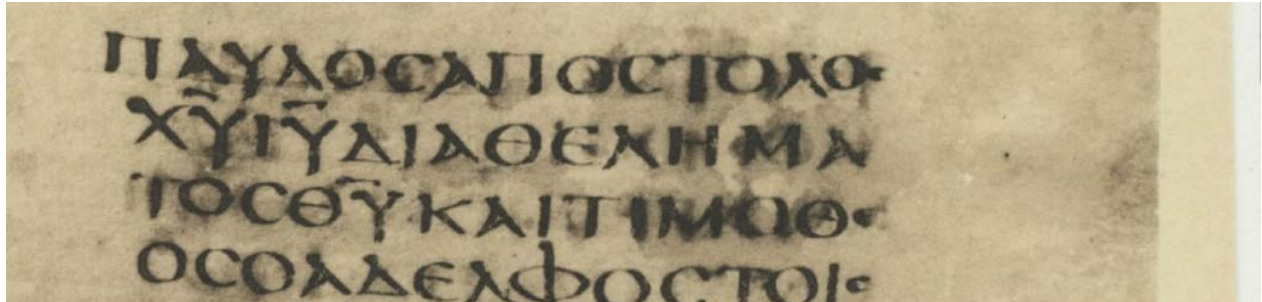 ΠΑΥΛΟϹΑΠΟϹΤΟΛΟϹ
Χ̅Υ̅Ι̅Υ̅ΔΙΑΘΕΛΗΜΑ
ΤΟϹΘ̅Υ̅ΚΑΙΤΙΜΩΘΕ
ΟϹΟΑΔΕΛΦΟϹΤΟΙϹ